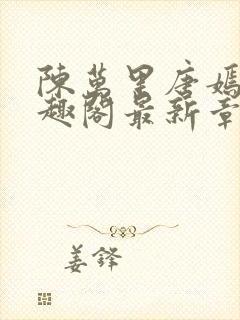 陳萬里唐嫣
趣閣最新章
姜鋒